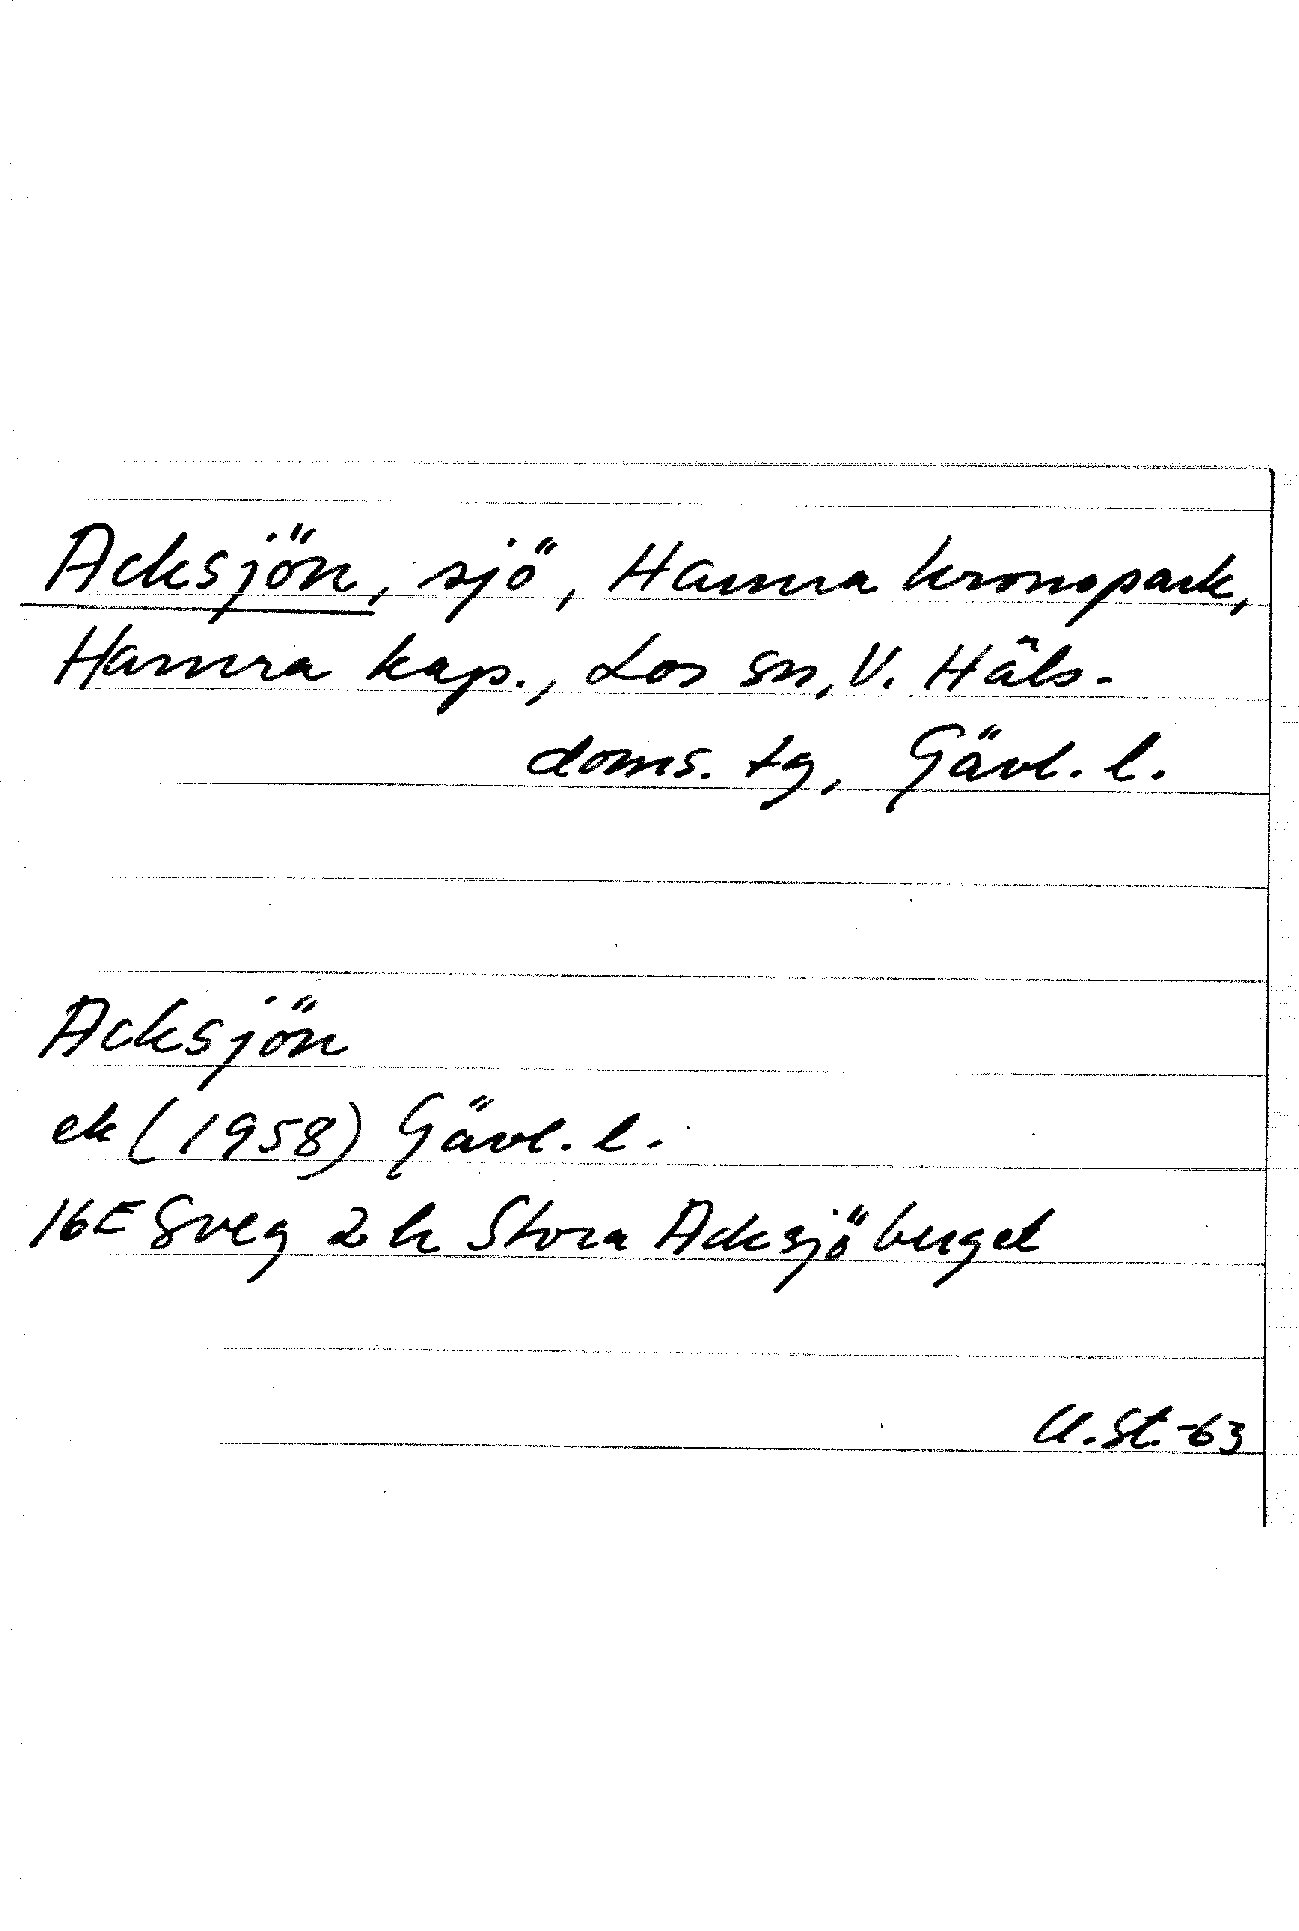 Acksjön, sjö, Hamra kronopark,
Hamra kap., Los sn, V. Häls.
doms. tg, Gävl. l.
Acksjön
ek (1958) Gävl. l.
16E Sveg 2h Stora Acksjöberget
U.St.-63